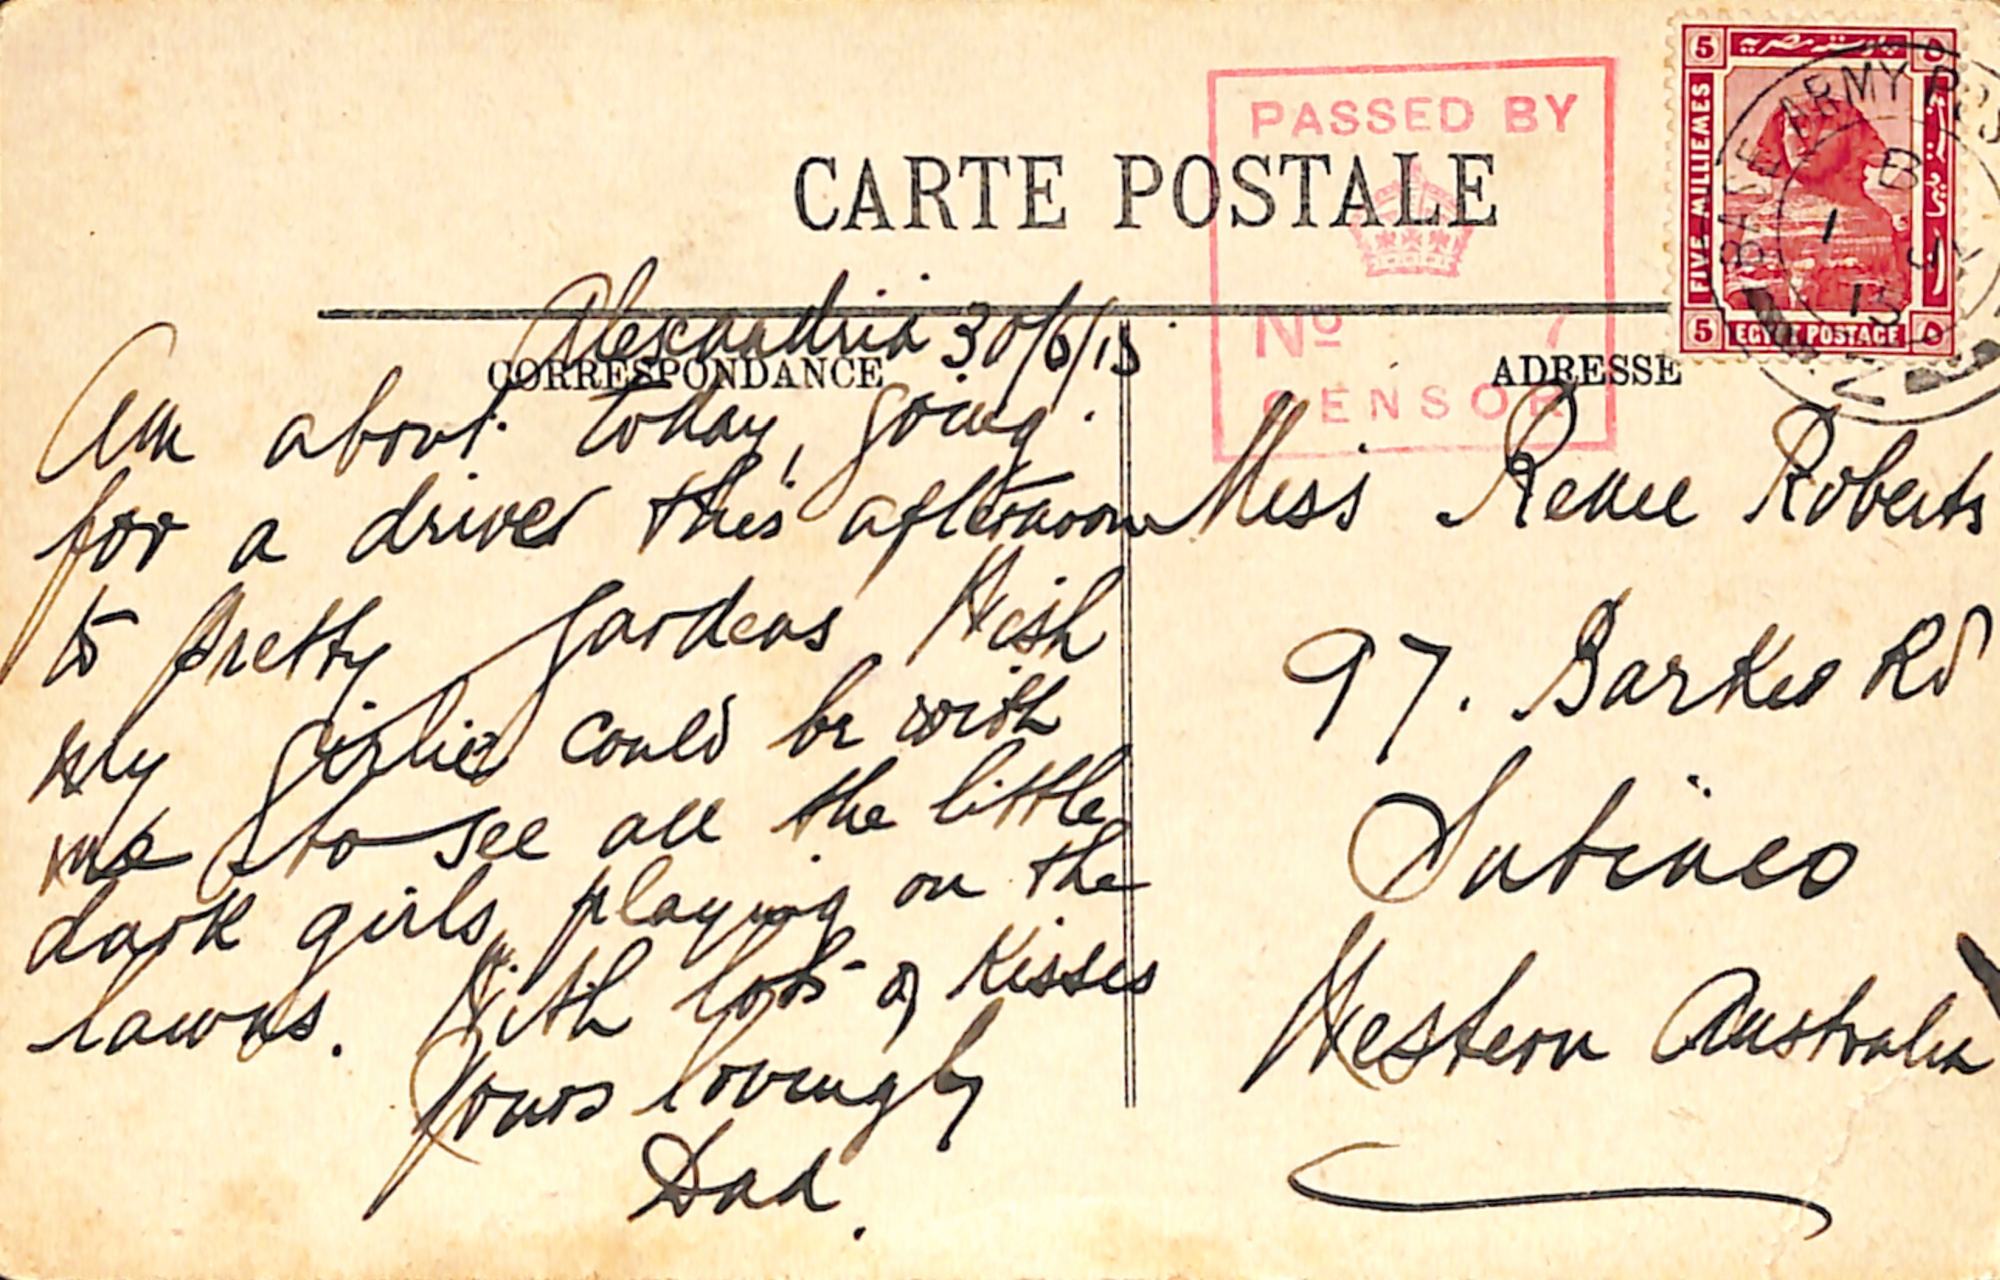 CARTE POSTALE
PASSED BY
Nº 7
CENSOR
5 بوستة مصرية ٥
FIVE MILLIEMES
5 EGYPT POSTAGE ٥
BASE ARMY POS
B
1 JL
15
CORRESPONDANCE
ADRESSE
Alexandria 30/6/15
Am about today, going
for a drive this afternoon
to pretty gardens Wish
My girlie could be with
me to see all the little
dark girls playing on the
lawns. With lots of kisses
Yours lovingly
Dad.
Miss Renee Roberts
97. Barker Rd
Subiaco
Western Australia